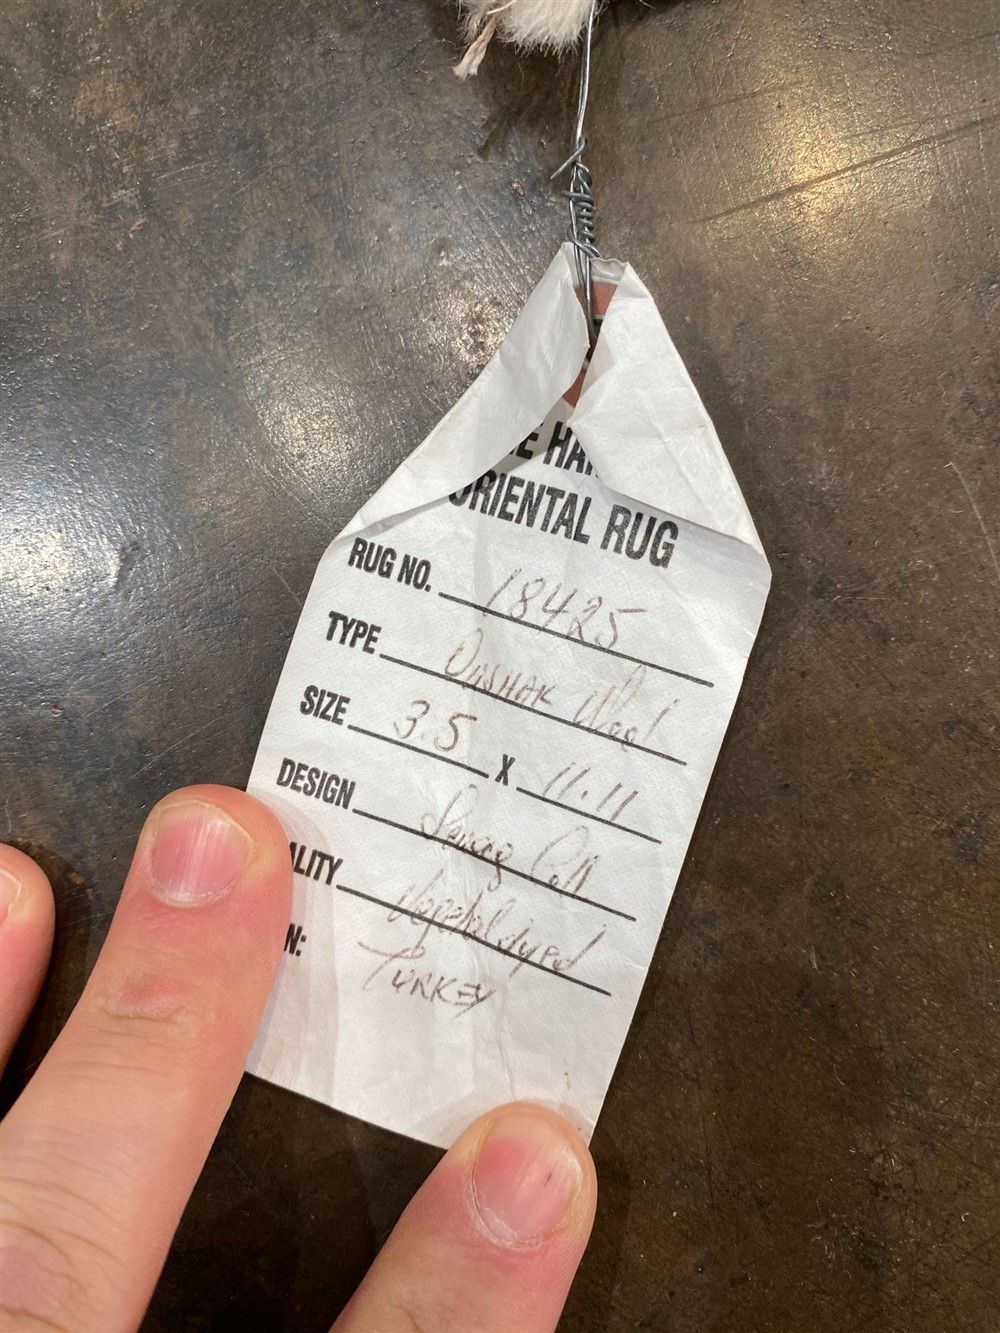 E HA
ORIENTAL RUG
RUG NO. 18425
TYPE Oushak Wool
SIZE 3.5 X 11.11
DESIGN
ALITY Vegetal dyed
N: TURKEY